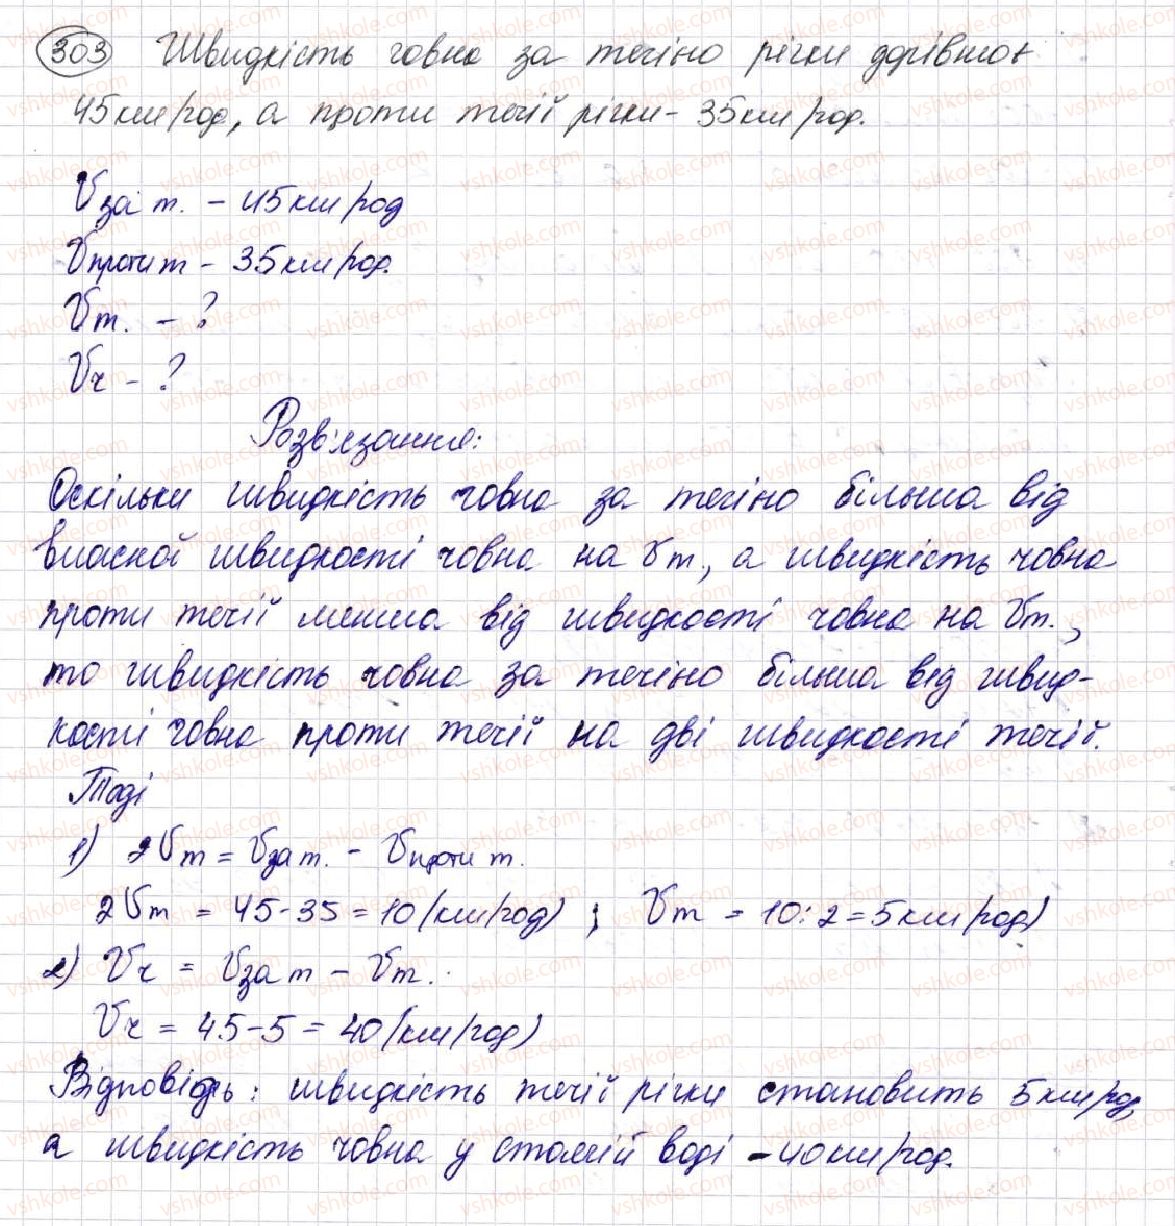 303 Швидкість човна за течією річки дорівнює
45 км/год, а проти течії річки - 35 км/год.
Vза т. - 45 км/год
Vпроти т - 35 км/год.
Vт. - ?
Vч - ?
Розв'язання:
Оскільки швидкість човна за течією більша від
власної швидкості човна на Vт., а швидкість човна
проти течії менша від швидкості човна на Vт.,
то швидкість човна за течією більша від швид-
кості човна проти течії на дві швидкості течії.
Тоді
1) 2Vт = Vза т. - Vпроти т.
2Vт = 45-35 = 10 (км/год) ; Vт = 10:2 = 5 км/год)
2) Vч = Vза т - Vт.
Vч = 45-5 = 40 (км/год)
Відповідь: швидкість течії річки становить 5 км/год,
а швидкість човна у стоячій воді - 40 км/год.
vshkole.com